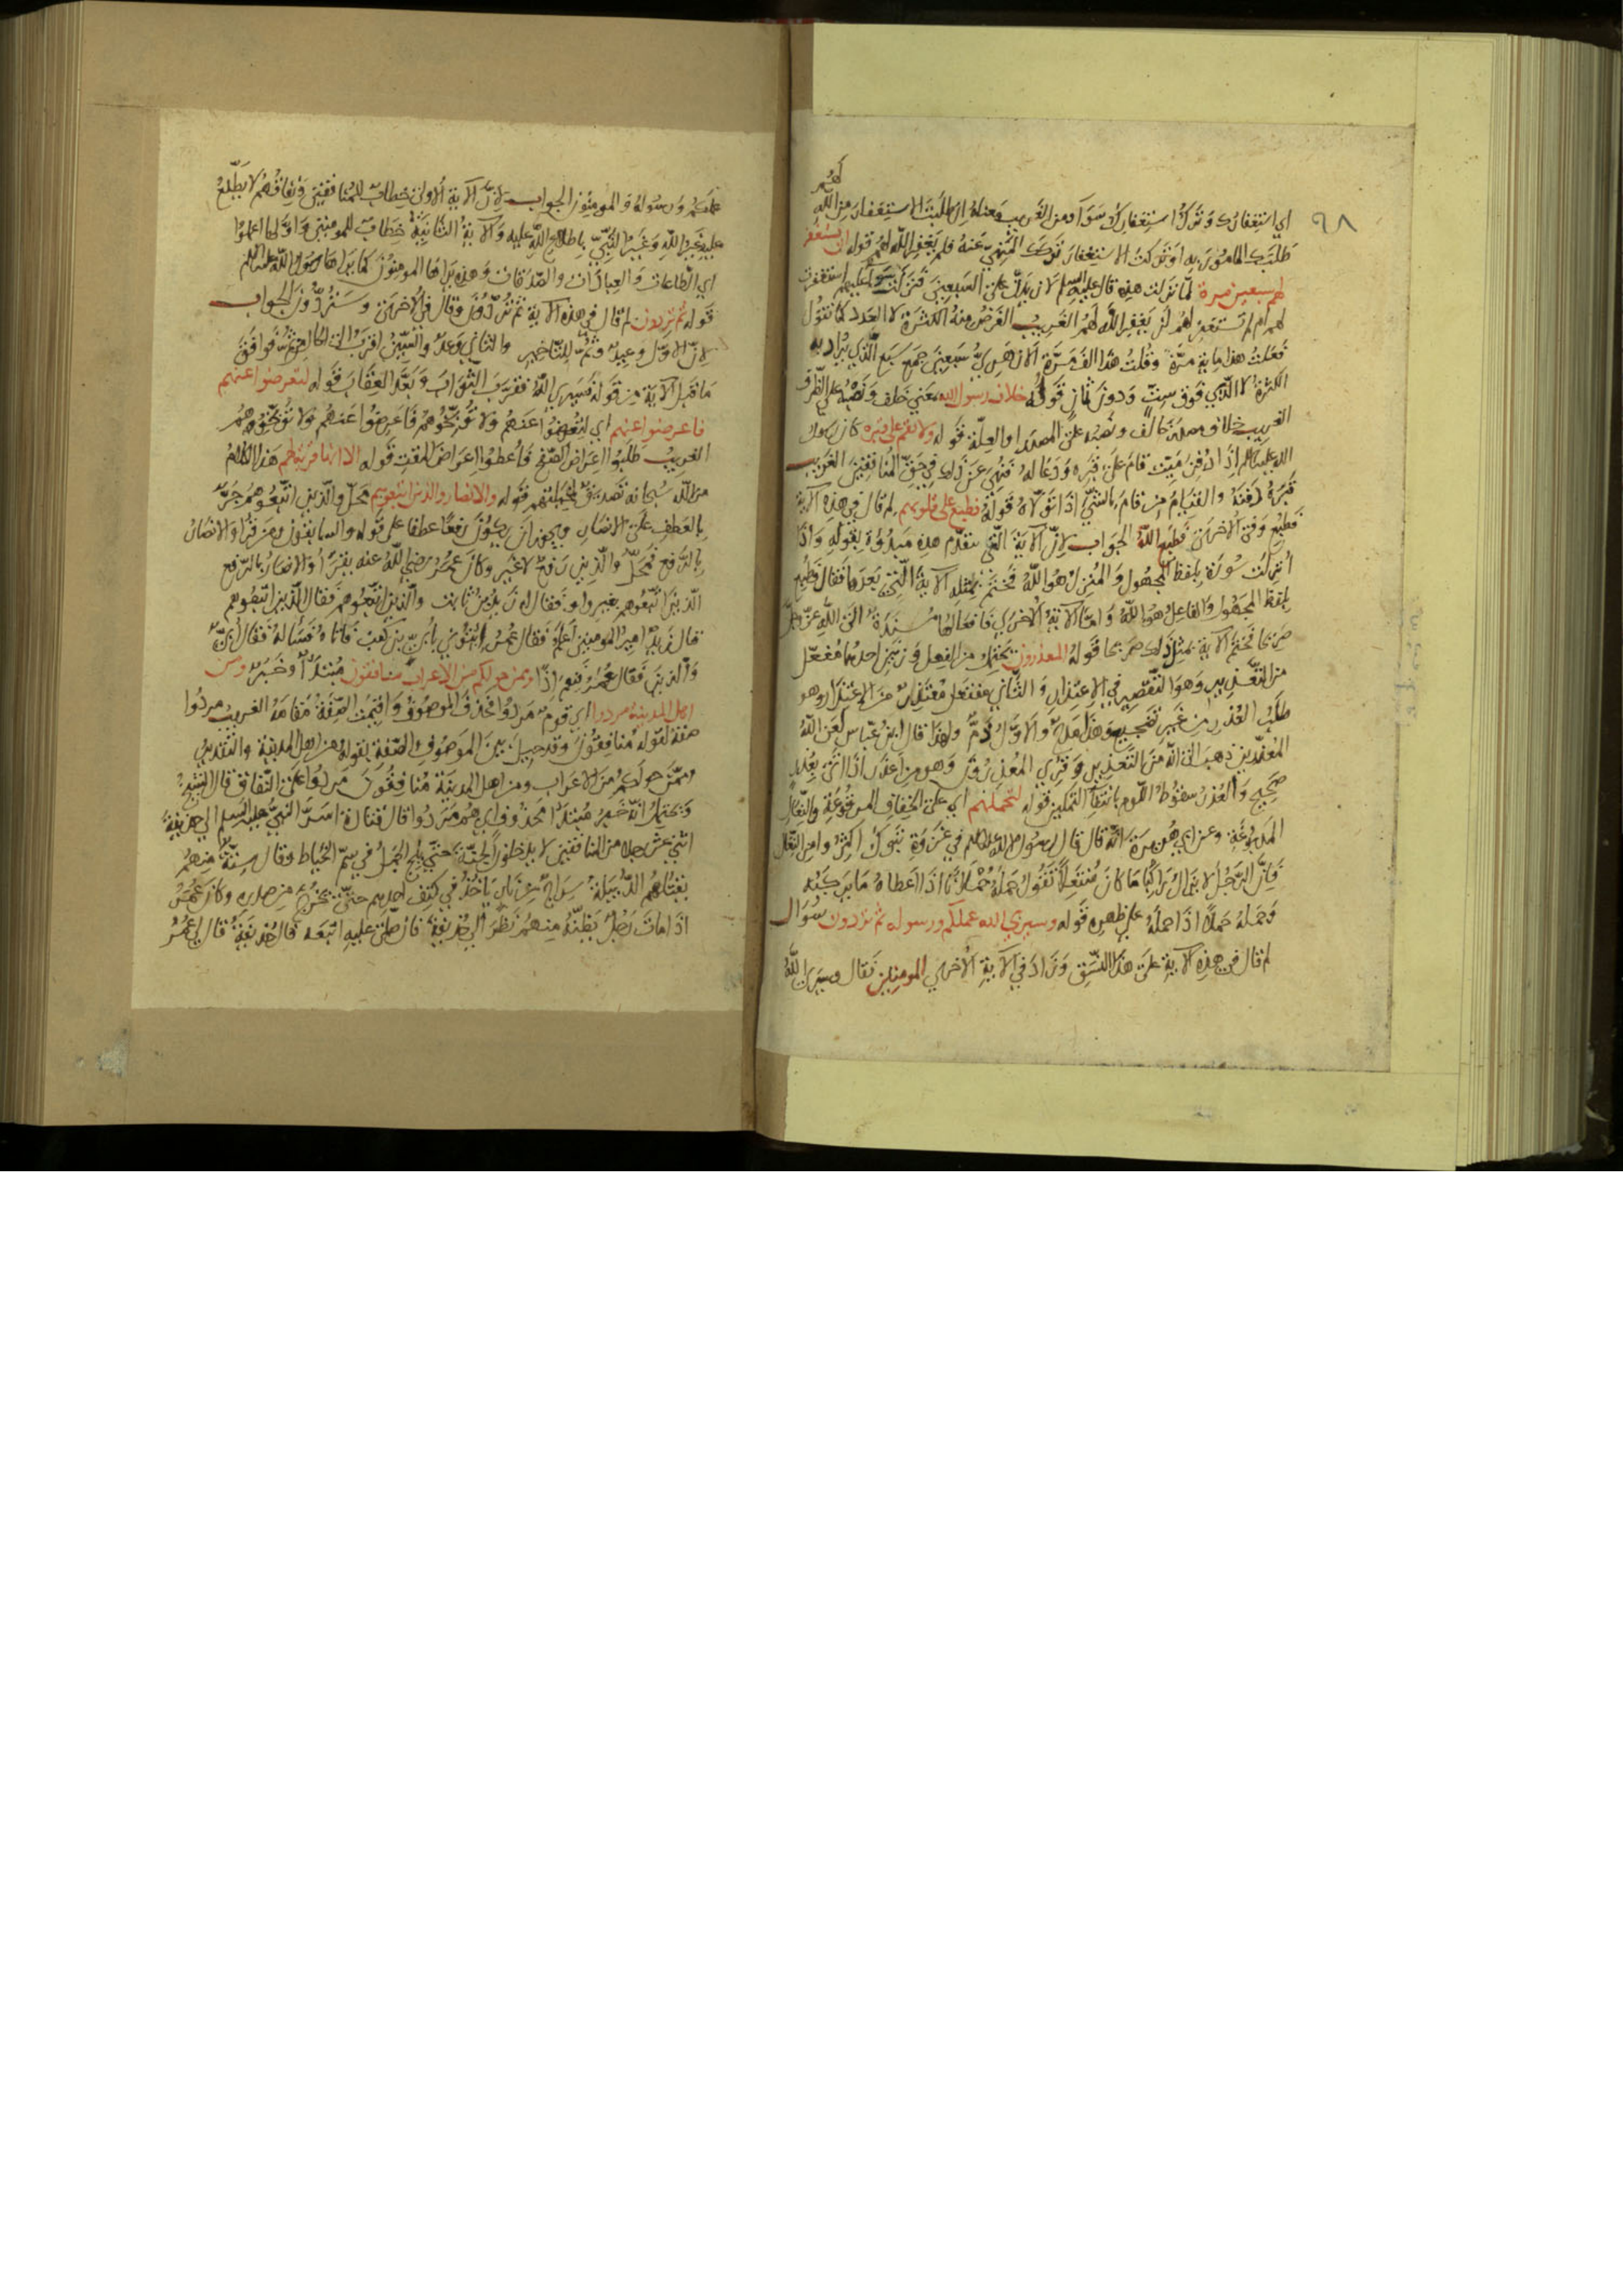 ٩٨
لهم
اي استغفارك وترك استغفارك سواء ومن الغريب معناه ان طلبت الاستغفار من الله
طلبك المامور به او تركت الاستغفار ترك المنهي عنه فلم يغفر الله لهم قوله ان تستغفر
لهم سبعين مرة لما نزلت هذه قال عليه السلم لازيدن على السبعين فنزلت سواء عليهم استغفرت
لهم ام لم تستغفر لهم لن يغفر الله لهم الغريب الغرض منه الكثرة لا العدد كما تقول
فعلت هذا مائة مرة وقلت هذا الف مرة سبعين جمع سبع الذي يراد به
الكثرة لا الذي فوق ست ودون ثمان قوله خلاف رسول الله يعني خلف ونصبه على الظرف
الغريب خلاف مصدر خالف ونصبه على المصدر او العلة قوله ولا تقم على قبره كان رسول
الله عليه السلم اذا دفن ميت قام على قبره ودعا له فنهي عن ذلك في حق المنافقين الغريب
قبره دفنه والقيام من قام بالشيء اذا تولاه قوله فطبع على قلوبهم لم قال في هذه الاية
فطبع وفي الاخرى فطبع الله الجواب لان الاية التي تقدم هذه مبدوة بقوله واذا
انزلت سورة بلفظ المجهول والمنزل هو الله فختم بمثله الاية التي بعدها فقال فطبع
بلفظ المجهول والفاعل هو الله واما الاية الاخرى فافعالها مسندة الى الله عز وجل
صريحا فختم الاية بمثل ذلك صريحا قوله المعذرون يحتمل من الفعل وزنين احدهما مفعل
من التعذير وهو التقصير في الاعتذار والثاني مفتعل معتذر من الاعتذار وهو
طلب العذر من غير تصحيح وهذا مدح والاول ذم ولهذا قال ابن عباس لعن الله
المعذرين ذهب الى انه من التعذير وقرئ المعذرون وهو من اعذر اذا اتى بعذر
صحيح والعذر سقوط اللوم بانتفاء التمكين قوله لتحملهم اي على الخفاف المرقوعة والنعال
المدبوغة وعن ابي هريرة انه قال قال رسول الله عليه السلم في غزوة تبوك اكثروا من النعال
فان الرجل لا يزال راكبا ما كان منتعلا تقول حمله حملانا اذا اعطاه ما يركبه
وحمله حملا اذا حمله على ظهره قوله وسيرى الله عملكم ورسوله ثم تردون سؤال
لم قال في هذه الاية على هذا النسق وزاد في الاية الاخرى المومنين فقال وسيرى الله
عملكم ورسوله والمومنون الجواب لان الاية الاولى خطاب للمنافقين ونفاقهم لا يطلع
عليه غير الله وغير النبي باطلاع الله عليه والاية الثانية خطاب للمومنين واولها اعملوا
اي الطاعات والعبادات والصدقات وهذه يراها المومنون كما يراها رسول الله عليه السلم
قوله ثم تردون لم قال في هذه الاية ثم تردون وقال في الاخرى وستردون الجواب
لان الاول وعيد وثم للتاخير والثاني وعد والسين اقرب الى الحال من ثم فوافق
ما قبل الاية من قوله فسيرى الله فقرب الثواب وبعد العقاب قوله لتعرضوا عنهم
فاعرضوا عنهم اي لتعرضوا عنهم ولا توبخوهم فاعرضوا عنهم ولا توبخوهم
الغريب طلبوا اعراض الصفح فاعطوا اعراض المقت قوله الا انها قربة لهم هذا الكلام
من الله سبحانه قوله والانصار والذين اتبعوهم محل والذين اتبعوهم جر
بالعطف على الانصار ويجوز ان يكون رفعا عطفا على قوله والسابقون ومن قرا والانصار
بالرفع فمحل والذين رفع لا غير وكان عمر رضي الله عنه يقرا والانصار بالرفع
الذين اتبعوهم بغير واو فقال له زيد بن ثابت والذين اتبعوهم فقال الذين اتبعوهم
قال زيد امير المومنين اعلم فقال عمر ائتوني بابي بن كعب فاتاه فساله فقال ابي
والذين فقال عمر فنعم اذا وممن حولكم من الاعراب منافقون مبتدا وخبر ومن
اهل المدينة مردوا اي قوم مردوا فحذف الموصوف واقيمت الصفة مقامه الغريب مردوا
صفة لقوله منافقون وقد حيل بين الموصوف والصفة بقوله ومن اهل المدينة والتقدير
وممن حولكم من الاعراب ومن اهل المدينة منافقون مردوا على النفاق
ويحتمل انه خبر مبتدا محذوف اي هم مردوا قال قتادة اسر النبي عليه السلم الى حذيفة
اثني عشر رجلا من المنافقين لا يدخلون الجنة حتى يلج الجمل في سم الخياط وقال ستة منهم
الدبيلة سراج من نار ياخذ في كتف احدهم حتى يخرج من صدره وكان عمر
اذا مات رجل يظنه منهم نظر الى حذيفة فان صلى عليه اتبعه قال حذيفة قال لي عمر